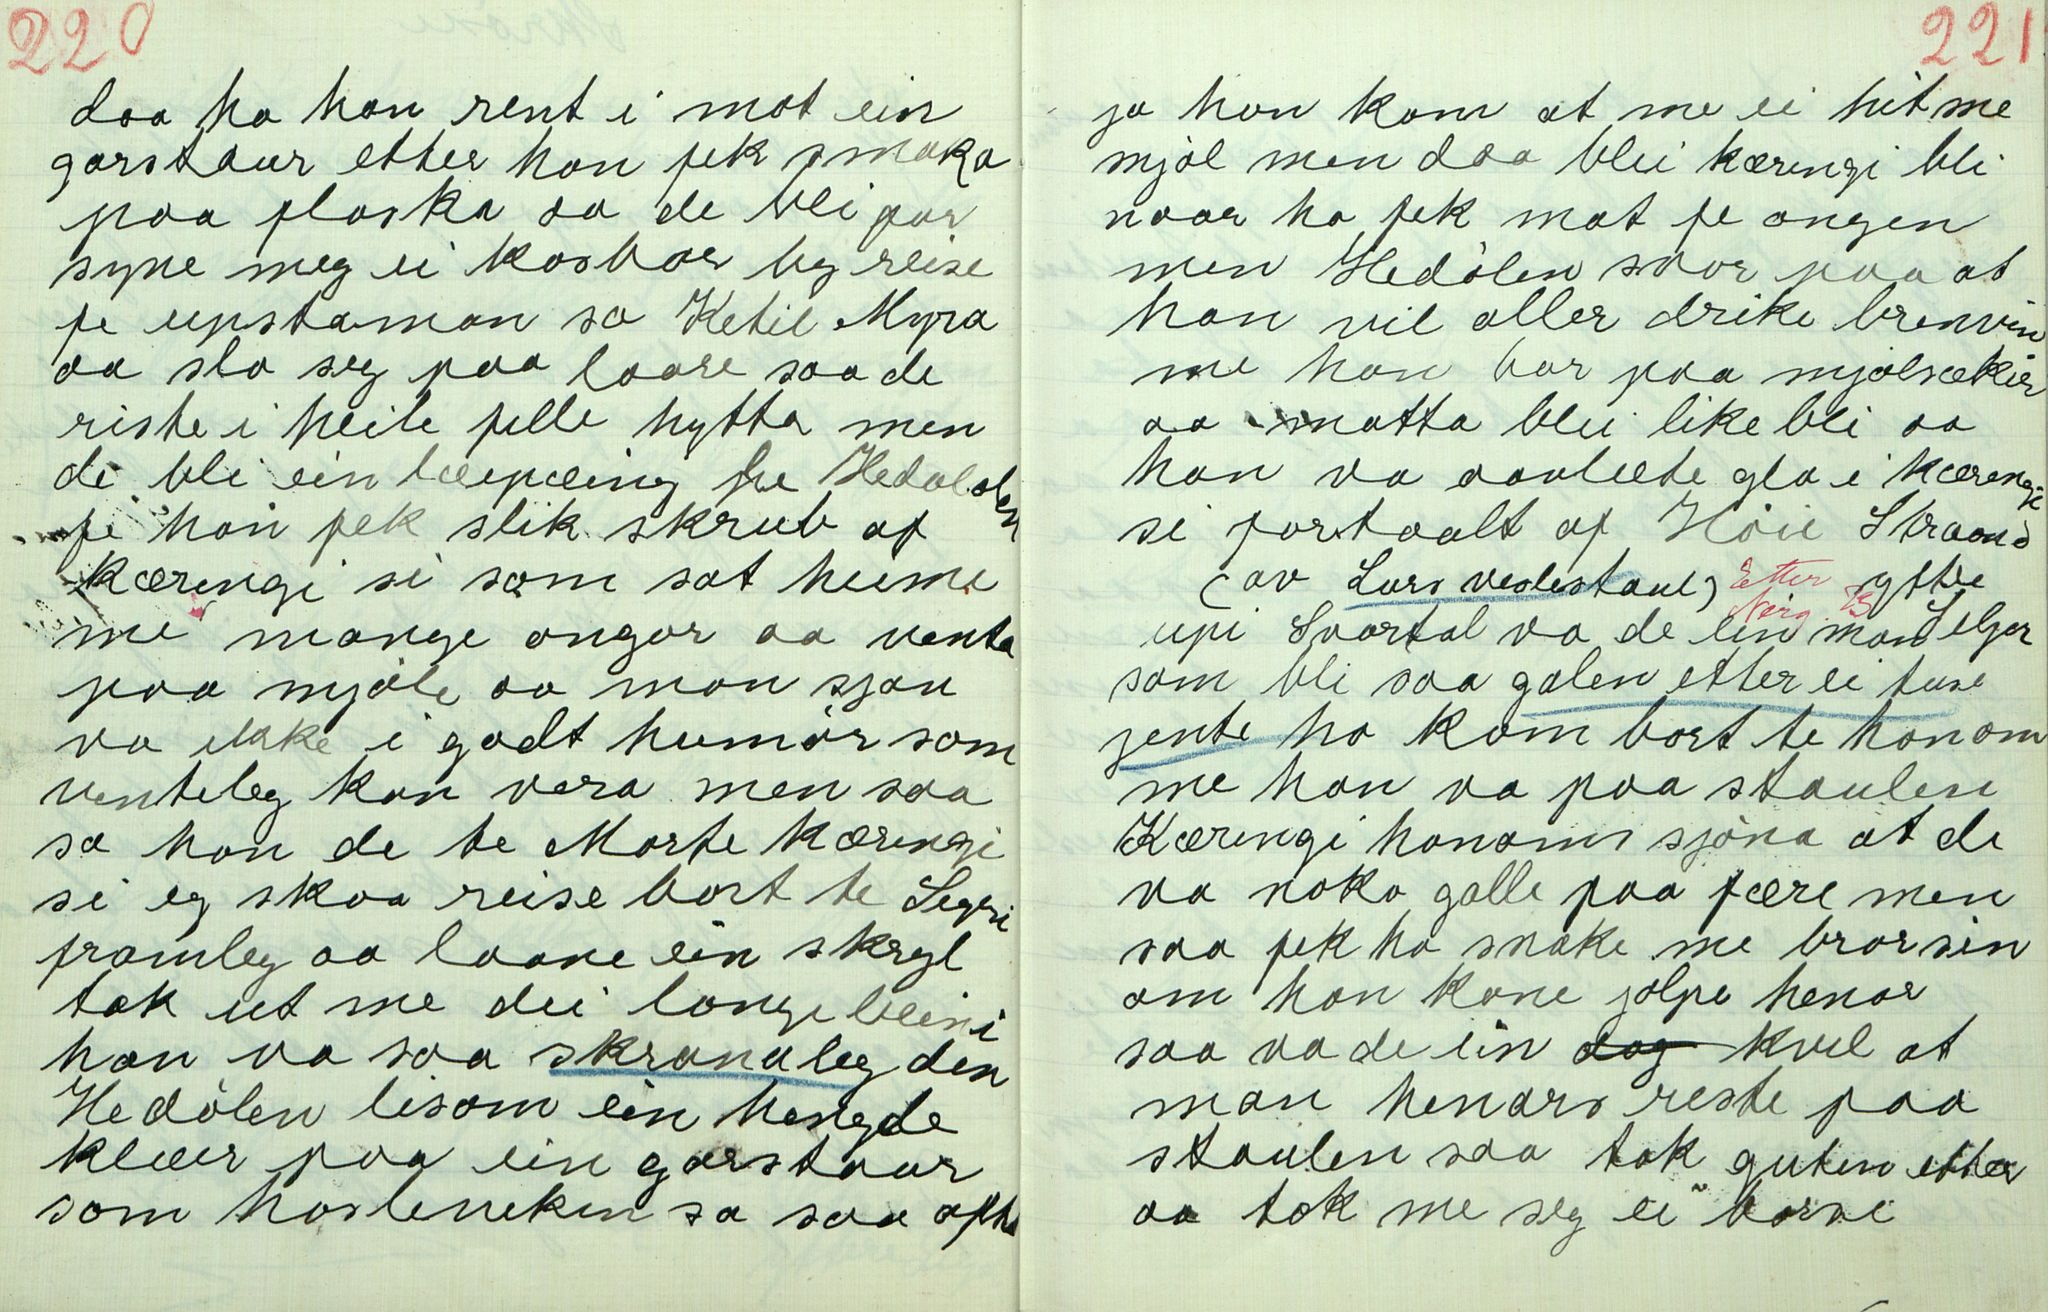 220
daa ha han rent i mot ein
garstaur etter han fek smaka
paa flaska aa de blei par
syne meg ei kosbaer beg reise
fe eupstaman sa Ketil Myra
aa slo seg paa laare saa de
riste i heile felle hytta men
di bli ein læepæing fre Hedalolen
fe han fek slik skrub af
kæringi si som sat heime
me mange ongar aa venta
paa mjøle aa man sjøn
va ikke i godt humør som
venteleg kan vera men saa
sa han de te Marte kæringi
si eg skaa reise bort te Segri
framleg aa laane ein skryl
tak ut me dei lange beini
han va saa skranaleg den
Hedølen lisom ein hengde
klæer paa ein garstaur
som hasleneken sa saa ofta
221
ja han kom at me ei hit me
mjøl men daa blei kæringi bli
naar ha fek mat fe ongen
men Hedølen svor paa at
han vil aller drike brenvin
me han bar paa mjølsækier
aa matta blei like bli aa
han va aavlæte gla i kæringe
si fortaalt af Høie Straand
(av Lars veslestaul) Etter yttre
Nørg
upi Svartdal va de ein man Seljor
som bli saa galen etter ei tuse
jente ho kom bort te honom
me han va paa staulen
Kæringi honoms sjøna at de
va noko galle paa fære men
saa fek ho snake me bror sin
om han kune jølpe henar
saa va de ein dag kvel at
man henars reste paa
staulen saa tok guten etter
aa tok me seg ei børse